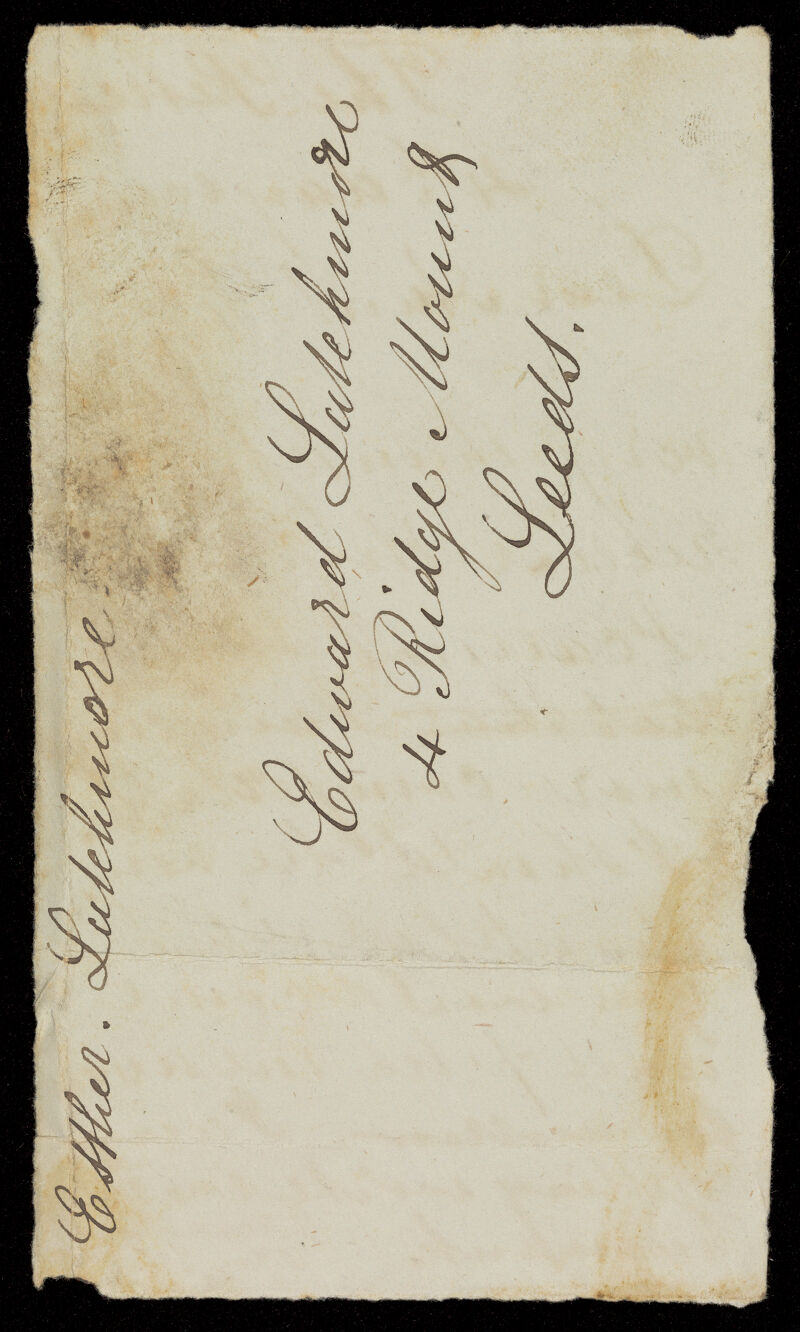 Esther. Latchmore
Edward Latchmore
4 Ridge Mount
Leeds.